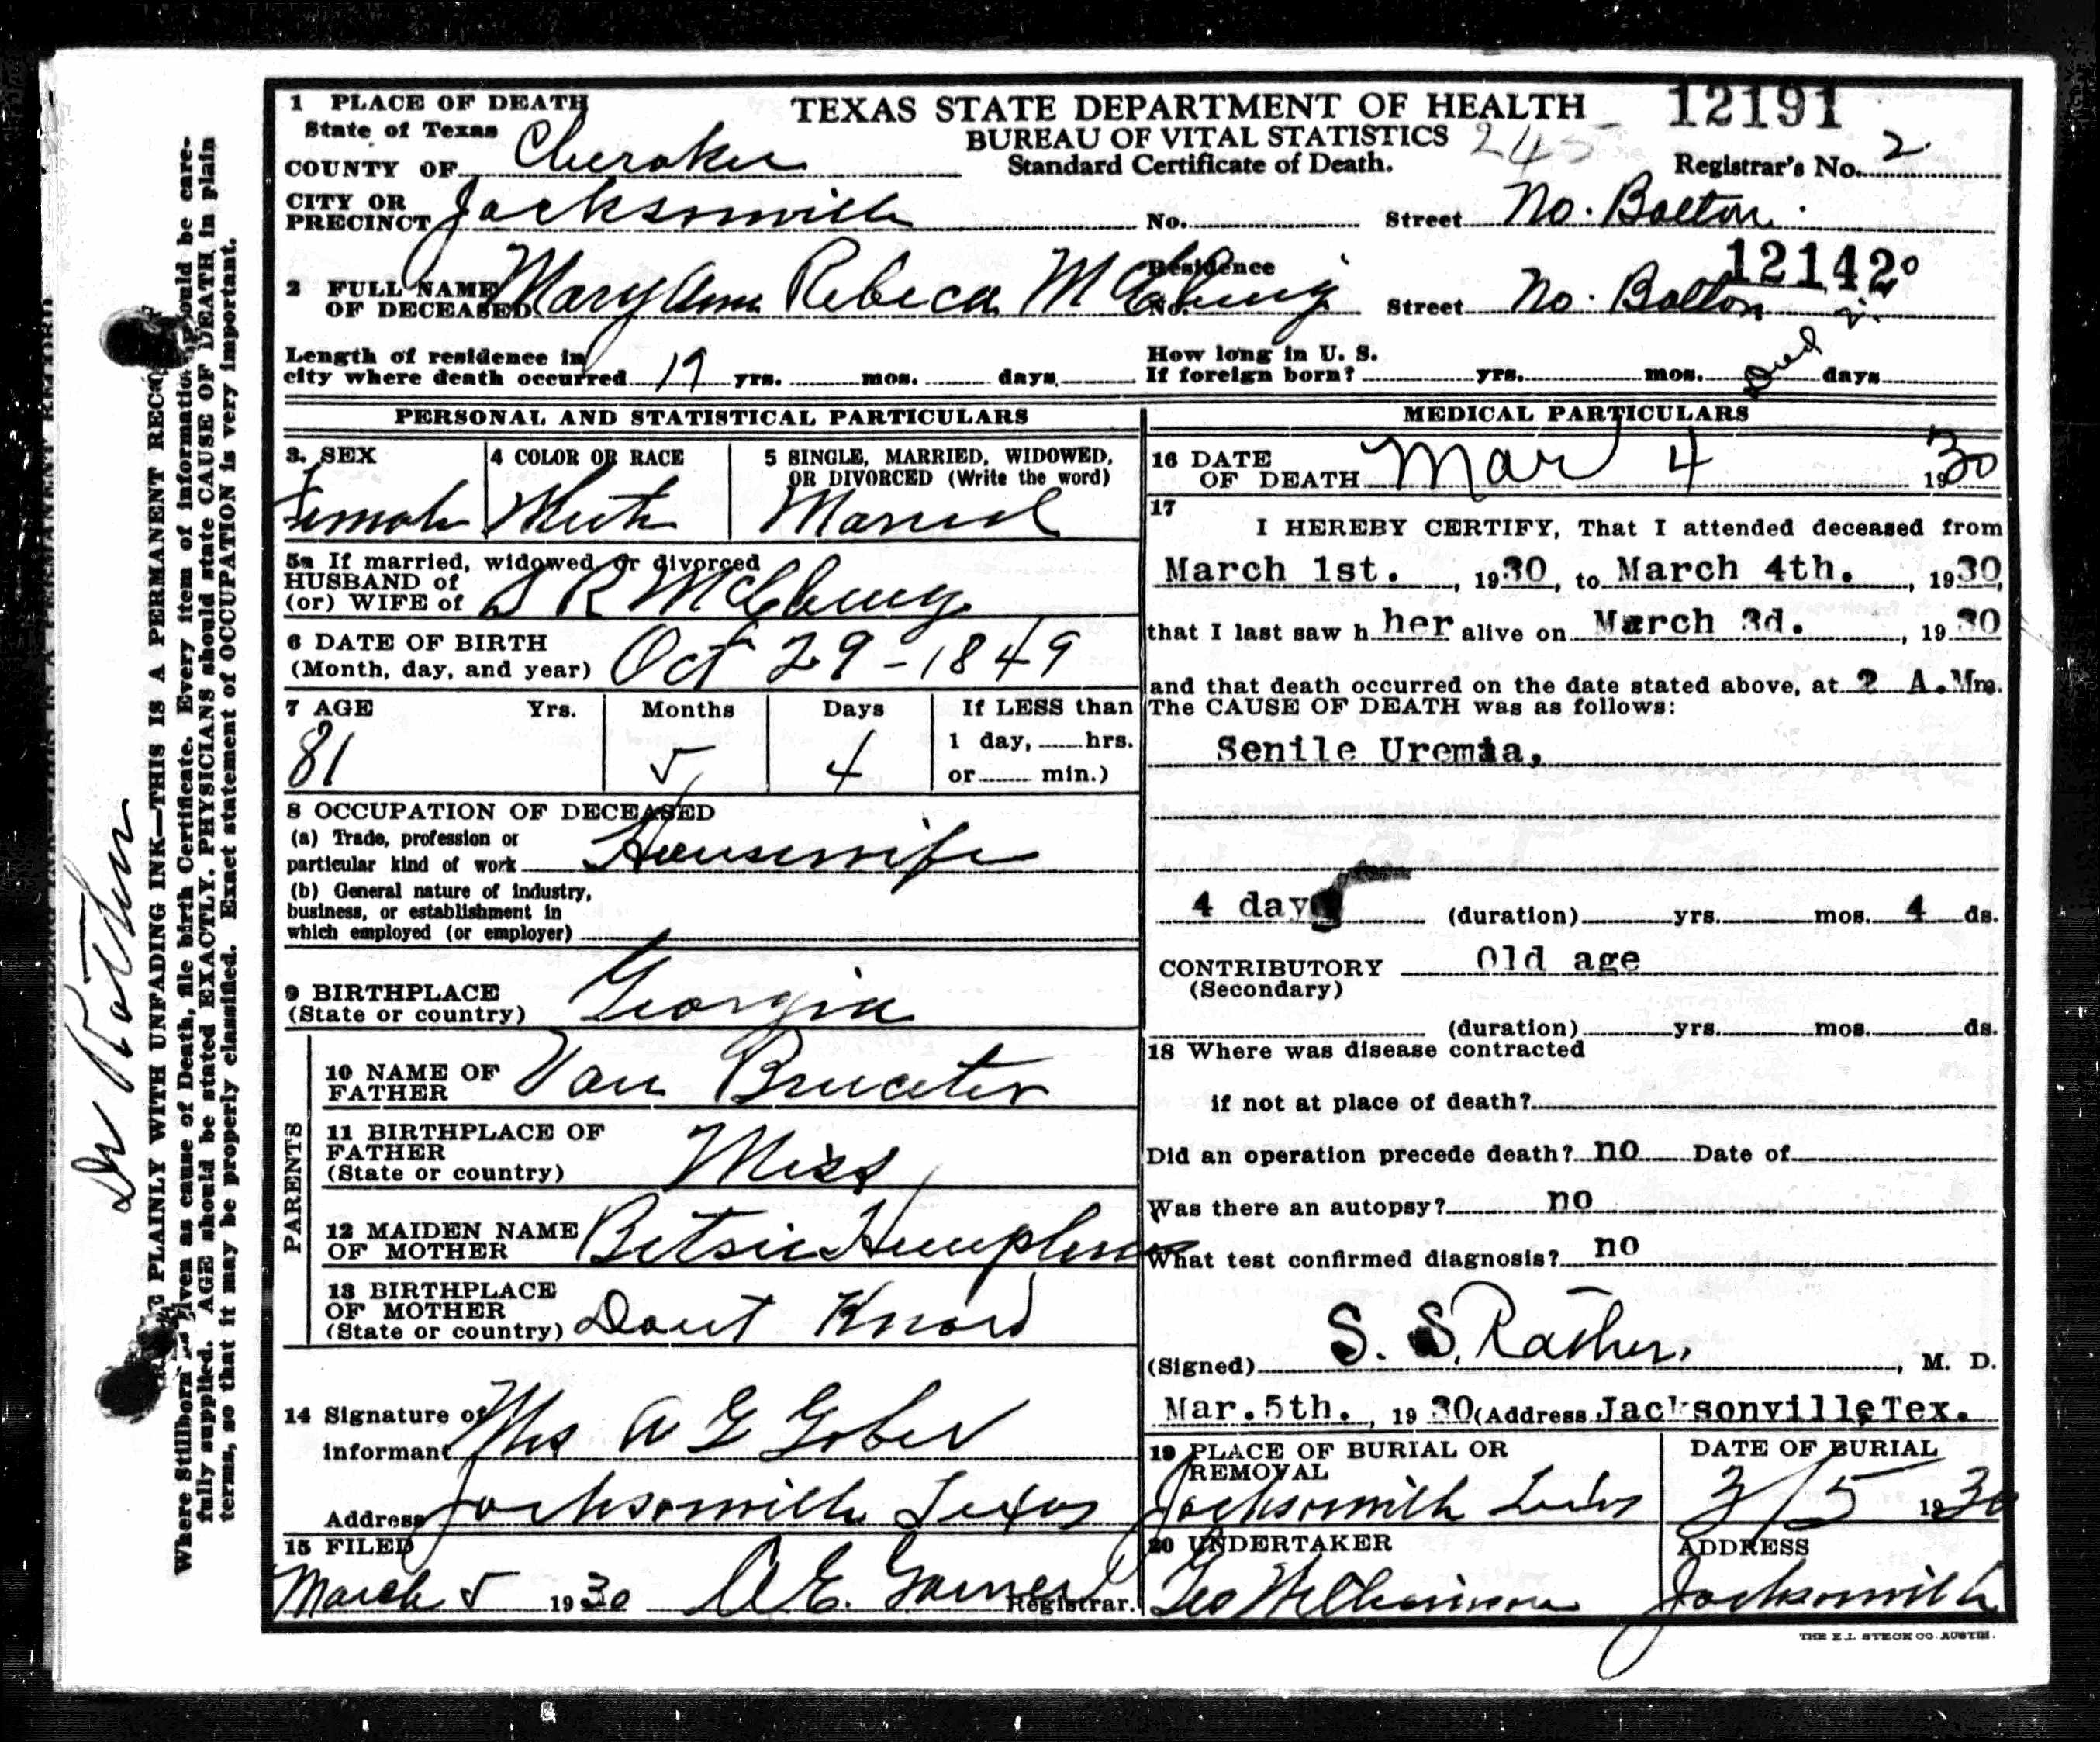 1 PLACE OF DEATH
State of Texas
COUNTY OF Cherokee
TEXAS STATE DEPARTMENT OF HEALTH
BUREAU OF VITAL STATISTICS
Standard Certificate of Death.
245
12191
Registrar's No. 2
CITY OR PRECINCT Jacksonville No. Street No. Bolton
12142
2 FULL NAME OF DECEASED Mary Ann Rebeca Residence No. Street No. Bolton
Length of residence in city where death occurred 19 yrs. mos. days
How long in U. S. If foreign born? yrs. mos. days
PERSONAL AND STATISTICAL PARTICULARS
3. SEX Female
4 COLOR OR RACE White
5 SINGLE, MARRIED, WIDOWED, OR DIVORCED (Write the word) Married
5a If married, widowed, or divorced
HUSBAND of
(or) WIFE of S R
6 DATE OF BIRTH
(Month, day, and year) Oct 29-1849
7 AGE Yrs. Months Days If LESS than
1 day, hrs.
81 5 4 or min.)
8 OCCUPATION OF DECEASED
(a) Trade, profession or
particular kind of work Housewife
(b) General nature of industry,
business, or establishment in
which employed (or employer)
9 BIRTHPLACE
(State or country) Georgia
PARENTS
10 NAME OF FATHER Van
11 BIRTHPLACE OF FATHER
(State or country) Miss
12 MAIDEN NAME OF MOTHER Betsie
13 BIRTHPLACE OF MOTHER
(State or country) Dont Know
14 Signature of informant Mrs A G Gober
Address Jacksonville Texas
15 FILED
March 5 1930 A E. Registrar.
MEDICAL PARTICULARS
16 DATE OF DEATH Mar 4 1930
17
I HEREBY CERTIFY, That I attended deceased from
March 1st. , 1930, to March 4th. , 1930,
that I last saw h her alive on March 3d. , 1930
and that death occurred on the date stated above, at 2 A.Mm.
The CAUSE OF DEATH was as follows:
Senile Uremia,
4 day (duration) yrs. mos. 4 ds.
CONTRIBUTORY Old age
(Secondary)
(duration) yrs. mos. ds.
18 Where was disease contracted
if not at place of death?
Did an operation precede death? no Date of
Was there an autopsy? no
What test confirmed diagnosis? no
(Signed) S. S. Rather. , M. D.
Mar. 5th. , 1930 (Address Jacksonville, Tex.
19 PLACE OF BURIAL OR REMOVAL
Jacksonville
DATE OF BURIAL
3/5 1930
20 UNDERTAKER
Geo
ADDRESS
Jacksonville
THE E.L. STECK CO. AUSTIN.
Dr Rather
PLAINLY WITH UNFADING INK—THIS IS A PERMANENT
Where Stillborn given as cause of Death, file birth Certificate. Every item of information should be care-
fully supplied. AGE should be stated EXACTLY. PHYSICIANS should state CAUSE OF DEATH in plain
terms, so that it may be properly classified. Exact statement of OCCUPATION is very important.